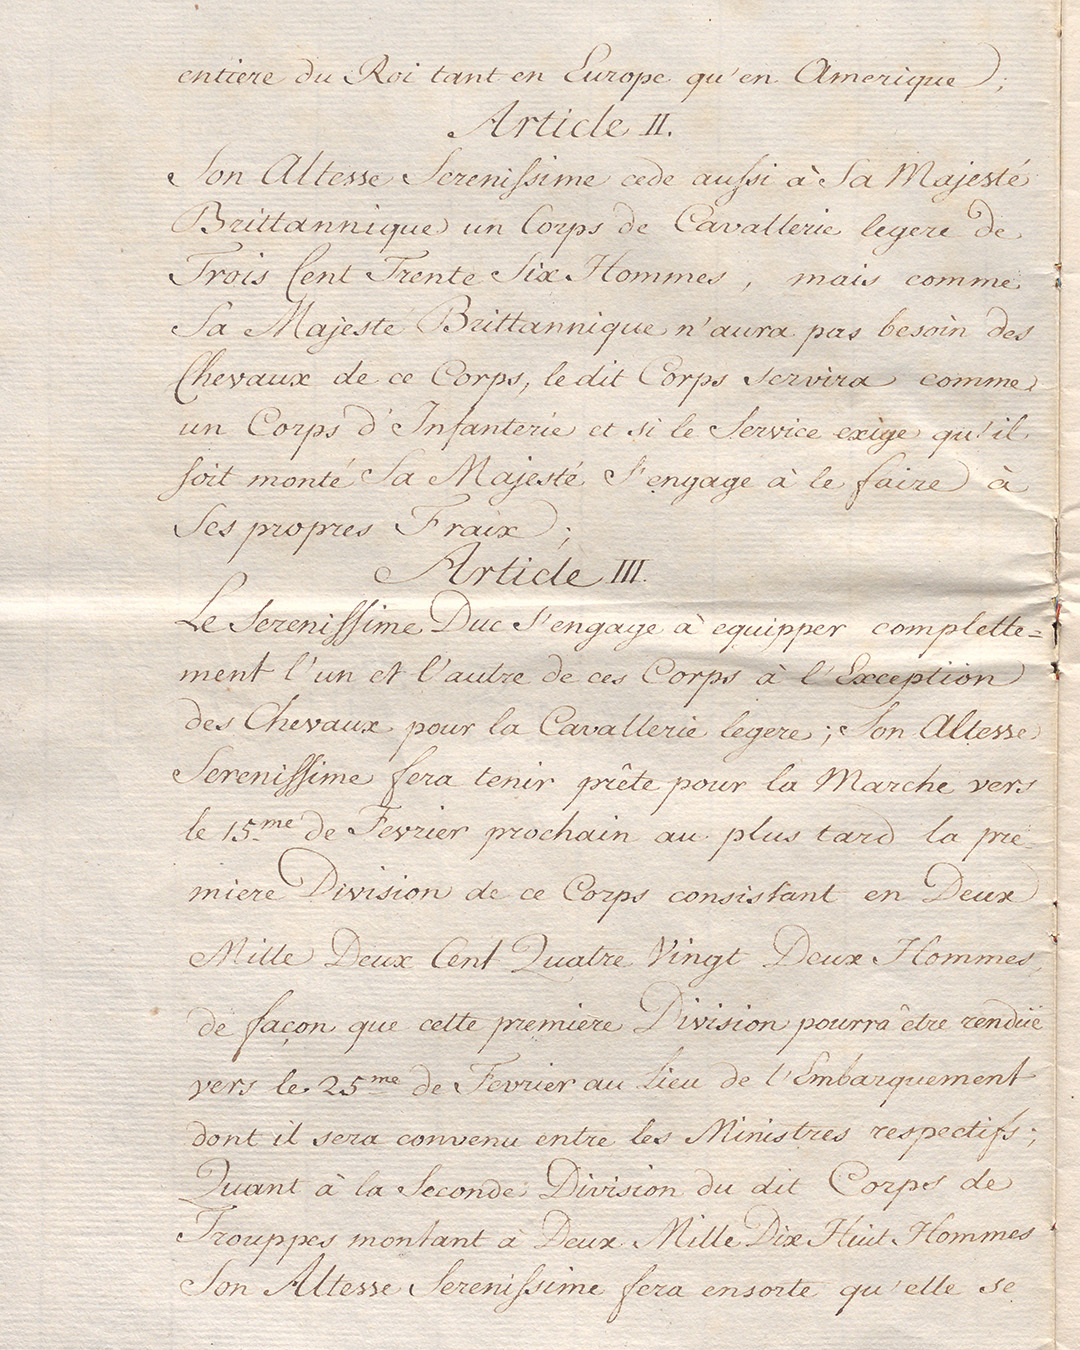 entiere du Roi tant en Europe qu'en Amerique;
Article II.
Son Altesse Serenissime cede aussi à Sa Majesté
Brittannique un Corps de Cavallerie legere de
Trois Cent Trente Six Hommes, mais comme
Sa Majesté Brittannique n'aura pas besoin des
Chevaux de ce Corps, le dit Corps servira comme
un Corps d'Infanterie et si le Service exige qu'il
soit monté Sa Majesté s'engage à le faire à
Ses propres Fraix;
Article III.
Le Serenissime Duc s'engage à equipper complette=
ment l'un et l'autre de ces Corps à l'Exception
des Chevaux pour la Cavallerie legere; Son Altesse
Serenissime fera tenir prête pour la Marche vers
le 15me de Fevrier prochain au plus tard la pre-
miere Division de ce Corps consistant en Deux
Mille Deux Cent Quatre Vingt Deux Hommes,
de façon que cette premiere Division pourra être rendüe
vers le 25me de Fevrier au Lieu de l'Embarquement
dont il sera convenu entre les Ministres respectifs;
Quant à la Seconde Division du dit Corps de
Trouppes montant à Deux Mille Dix Huit Hommes
Son Altesse Serenissime fera ensorte qu'elle se